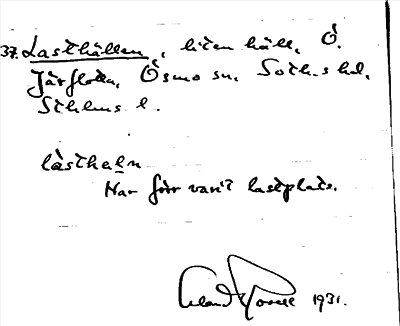 37. Lasthällen, liten häll, Ö.
Järflotta, Ösmo sn, Soth.s hd,
Sthlms l.
làsthęln
Har förr varit lastplats.
1931.